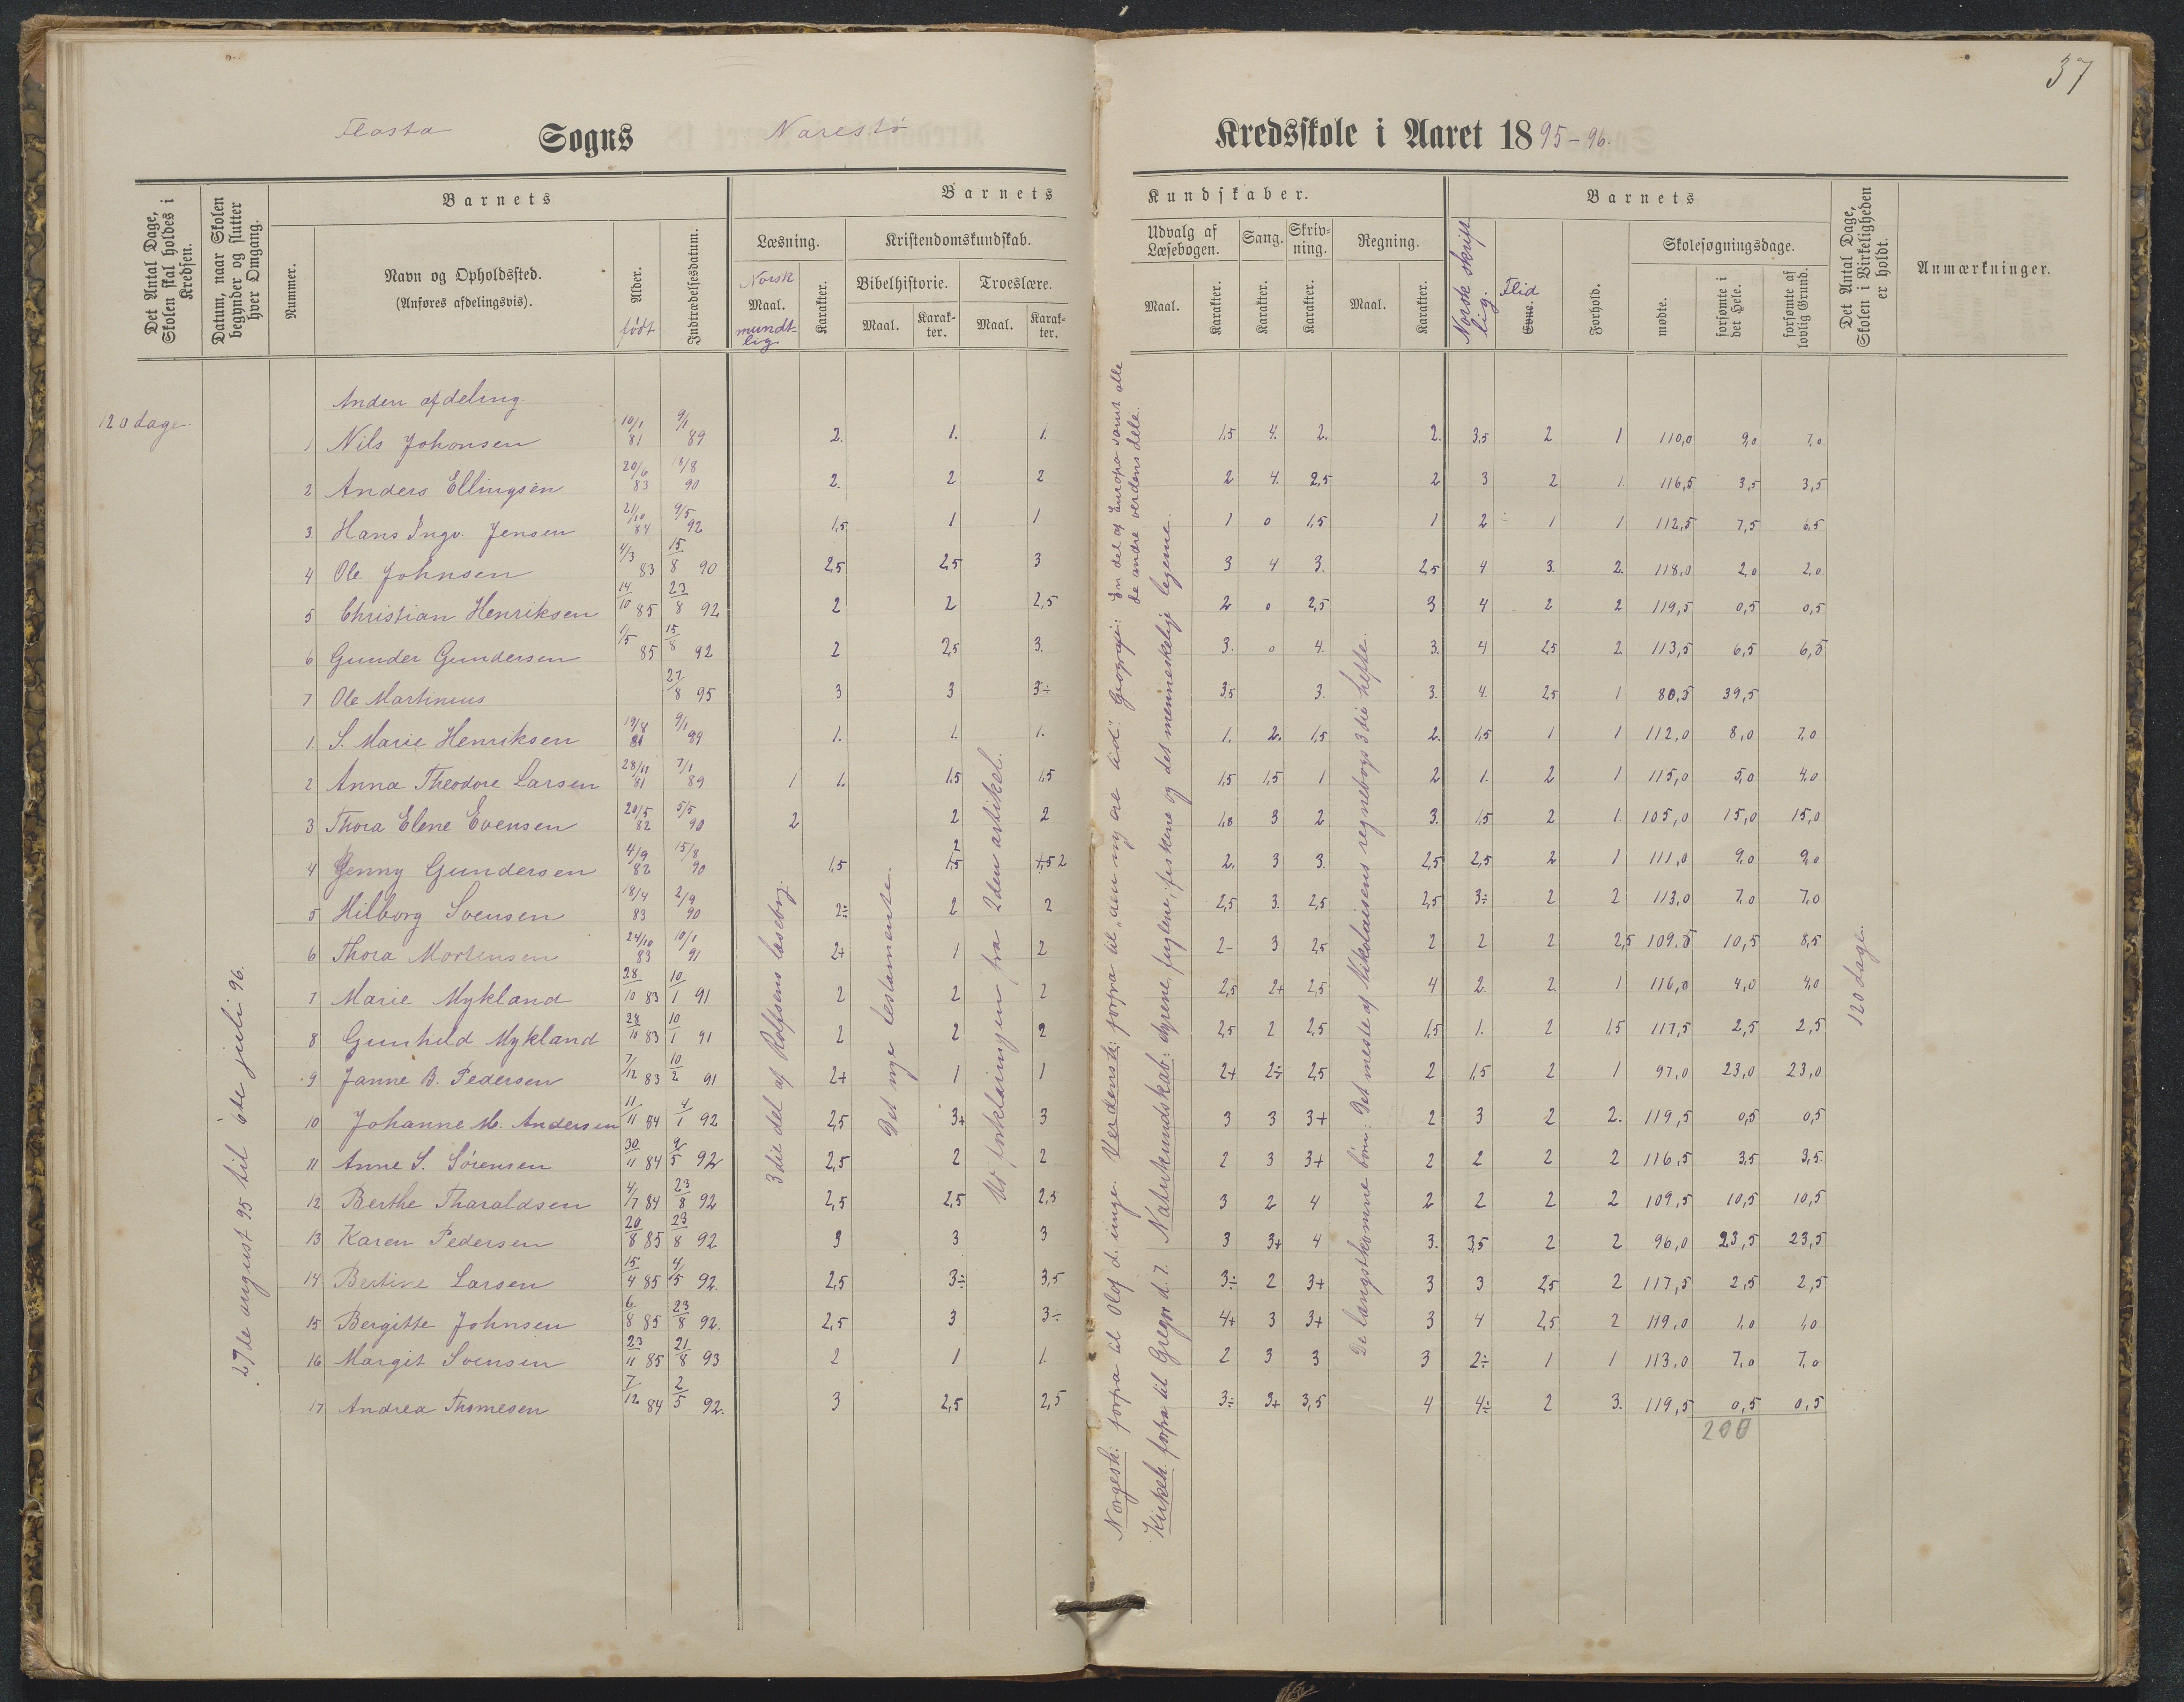 37
Flosta Sogns Narestø Kredsskole i Aaret 1895-96.
Det Antal Dage, Skolen skal holdes i Kredsen.
Datum, naar Skolen begynder og slutter hver Omgang.
Nummer.
Barnets
Navn og Opholdssted.
(Anføres afdelingsvis).
Alder.
født
Indtrædelsesdatum.
Barnets Kundskaber.
Læsning.
Norsk
Maal.
mundt-
lig
Karakter.
Kristendomskundskab.
Bibelhistorie.
Maal.
Karak-
ter.
Troeslære.
Maal.
Karak-
ter.
Udvalg af
Læsebogen.
Maal.
Karakter.
Sang.
Karakter.
Skriv-
ning.
Karakter.
Regning.
Maal.
Karakter.
Norsk skrift
lig.
Barnets
Flid
Evne.
Forhold.
Skolesøgningsdage.
mødte.
forsømte i det Hele.
forsømte af lovlig Grund.
Det Antal Dage, Skolen i Virkeligheden er holdt.
Anmærkninger.
120 dage.
27de august 95 til 6te juli 96.
Anden afdeling
1 Nils Johansen 10/1 81 9/1 89 2. 1. 1. 1,5 4. 2. 2. 3,5 2 1 110,0 9,0 7,0
2 Anders Ellingsen 20/6 83 18/8 90 2. 2 2 2 4. 2,5 2 3 2 1. 116,5 3,5 3,5
3. Hans Ingv. Jensen 21/10 84 9/5 92 1,5 1 1 1 0 1,5 1 2÷ 1 1 112,5 7,5 6,5
4 Ole Johnsen 4/3 83 15/8 90 2,5 2,5 3 3 4 3. 2,5 4 3. 2. 118,0 2,0 2,0
5 Christian Henriksen 14/10 85 23/8 92 2 2 2,5 2 0 2,5 3 4 2 2 119,5 0,5 0,5
6 Gunder Gundersen 1/5 85 15/8 92 2 2,5 3. 3. 0 4. 3. 4 2,5 2 113,5 6,5 6,5
7 Ole Martinius 27/8 95 3 3 3÷ 3,5 3. 3. 4. 2,5 1 80,5 39,5
1. S. Marie Henriksen 19/8 81 9/1 89 1. 1. 1. 1. 2. 1,5 2. 1,5 1 1 112,0 8,0 7,0
2 Anna Theodore Larsen 28/11 81 7/1 89 1 1. 1,5 1,5 1,5 1,5 1 2 1. 2 1 115,0 5,0 4,0
3 Thora Elene Evensen 20/5 82 5/5 90 2 2 2 1,8 3 2 3. 1,5 2 1. 105,0 15,0 15,0
4 Jenny Gundersen 4/9 82 15/8 90 1,5 1,5 1,5 2 2. 3 3. 2,5 2,5 2 1 111,0 9,0 9,0
5 Hilborg Svensen 18/4 83 2/9 90 2÷ 2 2 2,5 3. 2,5 2,5 3÷ 2 2 113,0 7,0 7,0
6 Thora Mortensen 24/10 83 10/1 91 2+ 1 2 2- 3 2,5 2 2 2 2,5 109,5 10,5 8,5
7 Marie Mykland 28/10 83 10/1 91 2 2 2 2,5 2+ 2,5 4 2. 2. 1 116,0 4,0 4,0
8 Gunhild Mykland 28/10 83 10/1 91 2 2 2 2,5 2 2,5 1,5 1. 2 1,5 117,5 2,5 2,5
9 Janne B. Pedersen 7/12 83 10/2 91 2+ 1 1 2+ 2÷ 2,5 2 1,5 2 1 97,0 23,0 23,0
10 Johanne M. Andersen 11/11 84 4/1 92 2,5 3+ 3 3 3 3+ 2 3 2 2. 119,5 0,5 0,5
11 Anne S. Sørensen 30/11 84 9/5 92 2,5 2 2 2 3 3+ 2 2 2 2 116,5 3,5 3,5.
12 Berthe Tharaldsen 4/7 84 23/8 92 2,5 2,5 2,5 3 2 4 2 2 2 2 109,5 10,5 10,5
13 Karen Pedersen 20/8 85 23/8 92 3 3 3 3 3+ 4 3. 3,5 2 2 96,0 23,5 23,5
14 Bertine Larsen 15/4 85 4/5 92. 2,5 3÷ 3,5 3÷ 2 3+ 3 3 2,5 2 117,5 2,5 2,5
15 Bergitte Johnsen 6/8 85 23/8 92. 2,5 3 3÷ 4+ 3 3+ 3 4 2,5 2 119,0 1,0 1,0
16 Margit Svensen 23/11 85 21/8 93 2 1 1. 2 3 3 3 2÷ 1 1 113,0 7,0 7,0
17 Andrea Thomesen 7/12 84 2/5 92. 3 2,5 2,5 3÷ 3+ 3,5 4 4÷ 2 3. 119,5 0,5 0,5
200
3die del af Rolfsens læsebog.
Det nye testamente.
Av forklaringen, fra 2den artikel.
Norgesh: forfra til Olaf d. unge. Verdensh: forfra til "den nyere tid". Geografi: En del af Europa samt alle
de andre verdens dele.
Kirkeh. forfra til Gregor d. 7. Naturkundskab: dyrene, fuglene, fiskene og det menneskelige legeme.
De længstkomne børn: Det meste af Nikolaisens regnebogs 3die hefte.
120 dage.